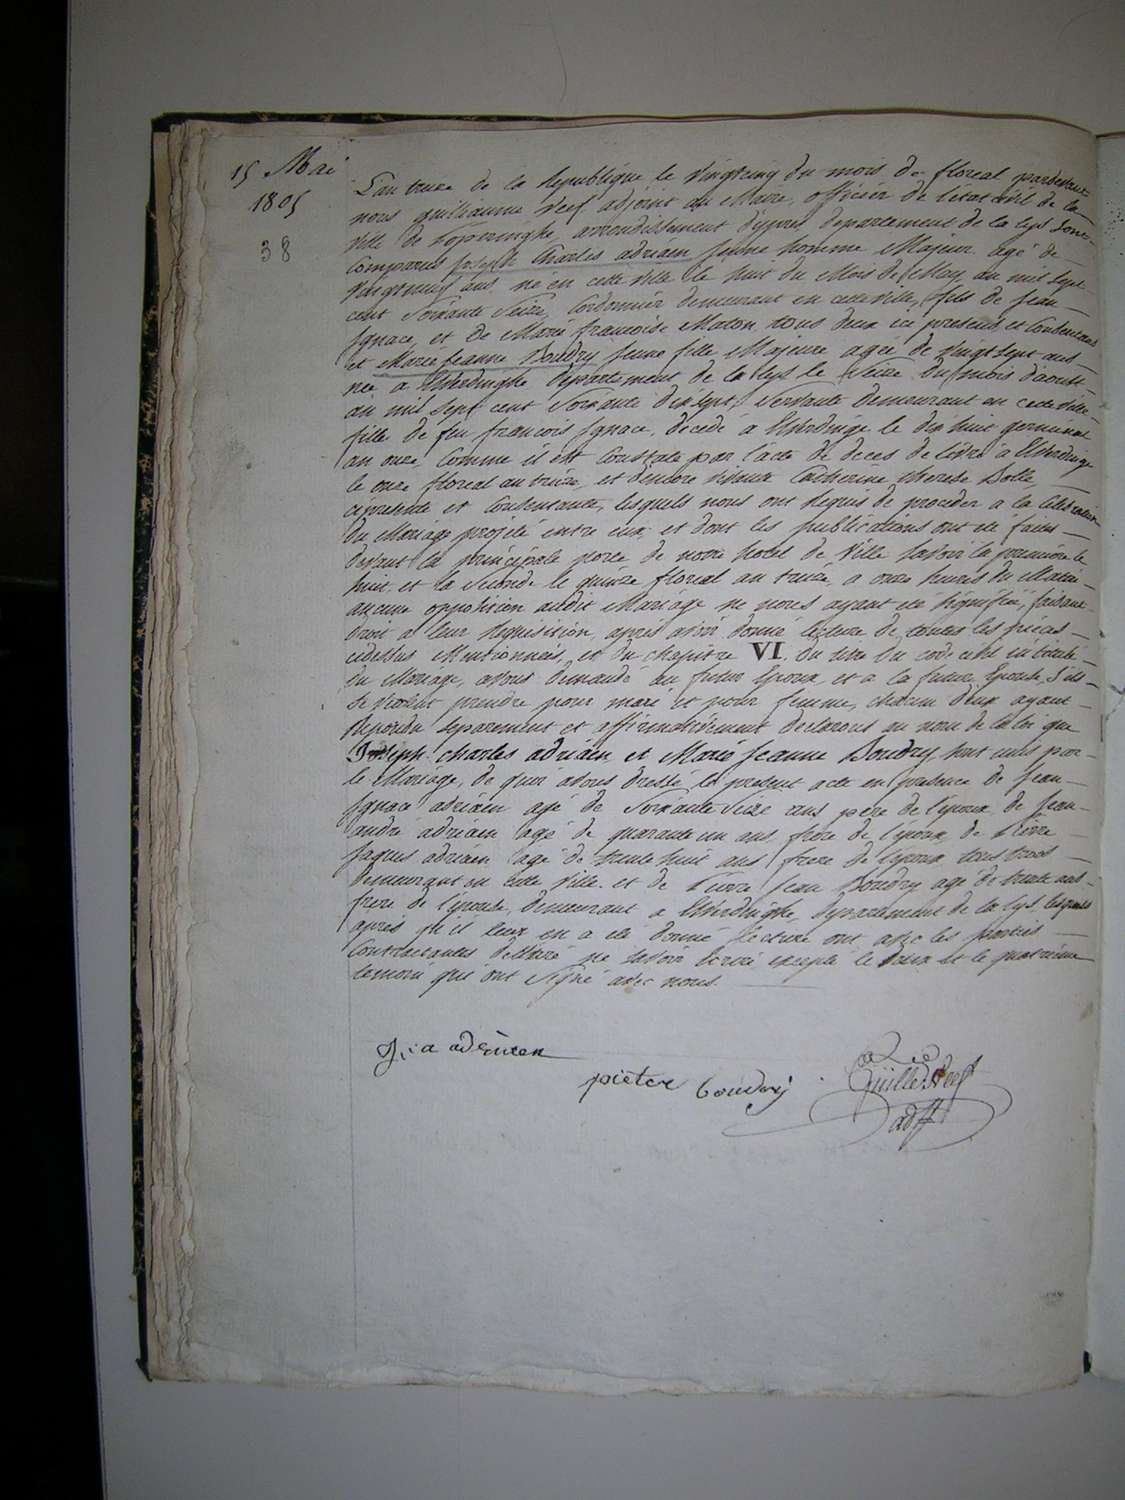 15 Mai
1805
38
L'an treize de la Republique le vingtcinq du mois de floreal pardevant
nous guiliaume Neef adjoint au Maire, officier de l'état civil de la
ville de Poperinghe arrondissement d'ypres departement de la Lys sont
Comparus joseph Charles adriaen jeune homme Majeur agé de
vingtneuf ans né en cette ville le huit du Mois de May an mil sept
cent Soixante Seize, Cordonnier demeurant en cette ville, fils de jean
Ignace, et de Marie francoise Maton tous deux ici present et Consentans
et Marie Jeanne Boudry jeune fille Majeure agée de vingt sept ans
née a Elverdinghe departement de la Lys le Seize du mois d'aoust
an mil sept cent Soixante dixsept, Servante demeurant en cette ville
fille de feu francois Ignace, decedé à Elverdinge le dix huit germinal
an onze, comme il est Constaté par l'acte de deces delivré à Elverdinge
le onze floreal an treize, et d'encore vivante Catherine therese Bolle,
cipresente et Consentante, lesquels nous ont requis de proceder a la Célébration
du Mariage projeté entre eux, et dont les publications ont été faites
devant la principale porte de notre hotel de Ville savoir la premiere le
huit, et la seconde le quinze floreal an treize, a onze heures du Matin
aucune opposition audit Mariage ne nous ayant été signifiée, faisant
droit a leur requisition, apres avoir donné lecture de toutes les pieces
cidessus Mentionnées, et du chapitre VI. du titre du code civil intitulé
du Mariage, avons demandé au futur Epoux, et a la future Epouse, s'ils
se veulent prendre pour mari et pour femme, chacun d'eux ayant
repondu separement et affirmativement declarons au nom de la loi que
Joseph charles adriaen, et Marie Jeanne Boudry, sont unis par
le Mariage, de quoi avons dressé le present acte en presence de jean
Ignace adriaen agé de Soixante Seize ans pere de l'époux, de jean
andré adriaen agé de quarante un ans, frere de l'époux, de Pierre
jaques adriaen agé de trente huit ans frere de l'époux, tous trois
demeurant en cette Ville. et de Pierre Jean Boudry agé de trente ans
frere de l'épouse, demeurant a Elverdinghe, departement de la Lys, lesquels
après qu'il leur en a été donné lecture ont avec les parties
Contractantes declaré ne savoir écrire excepté le deux et le quatrieme
temoin qui ont signé avec nous.
J: a adriaen
pieter boudry
Guille Neef
adjt